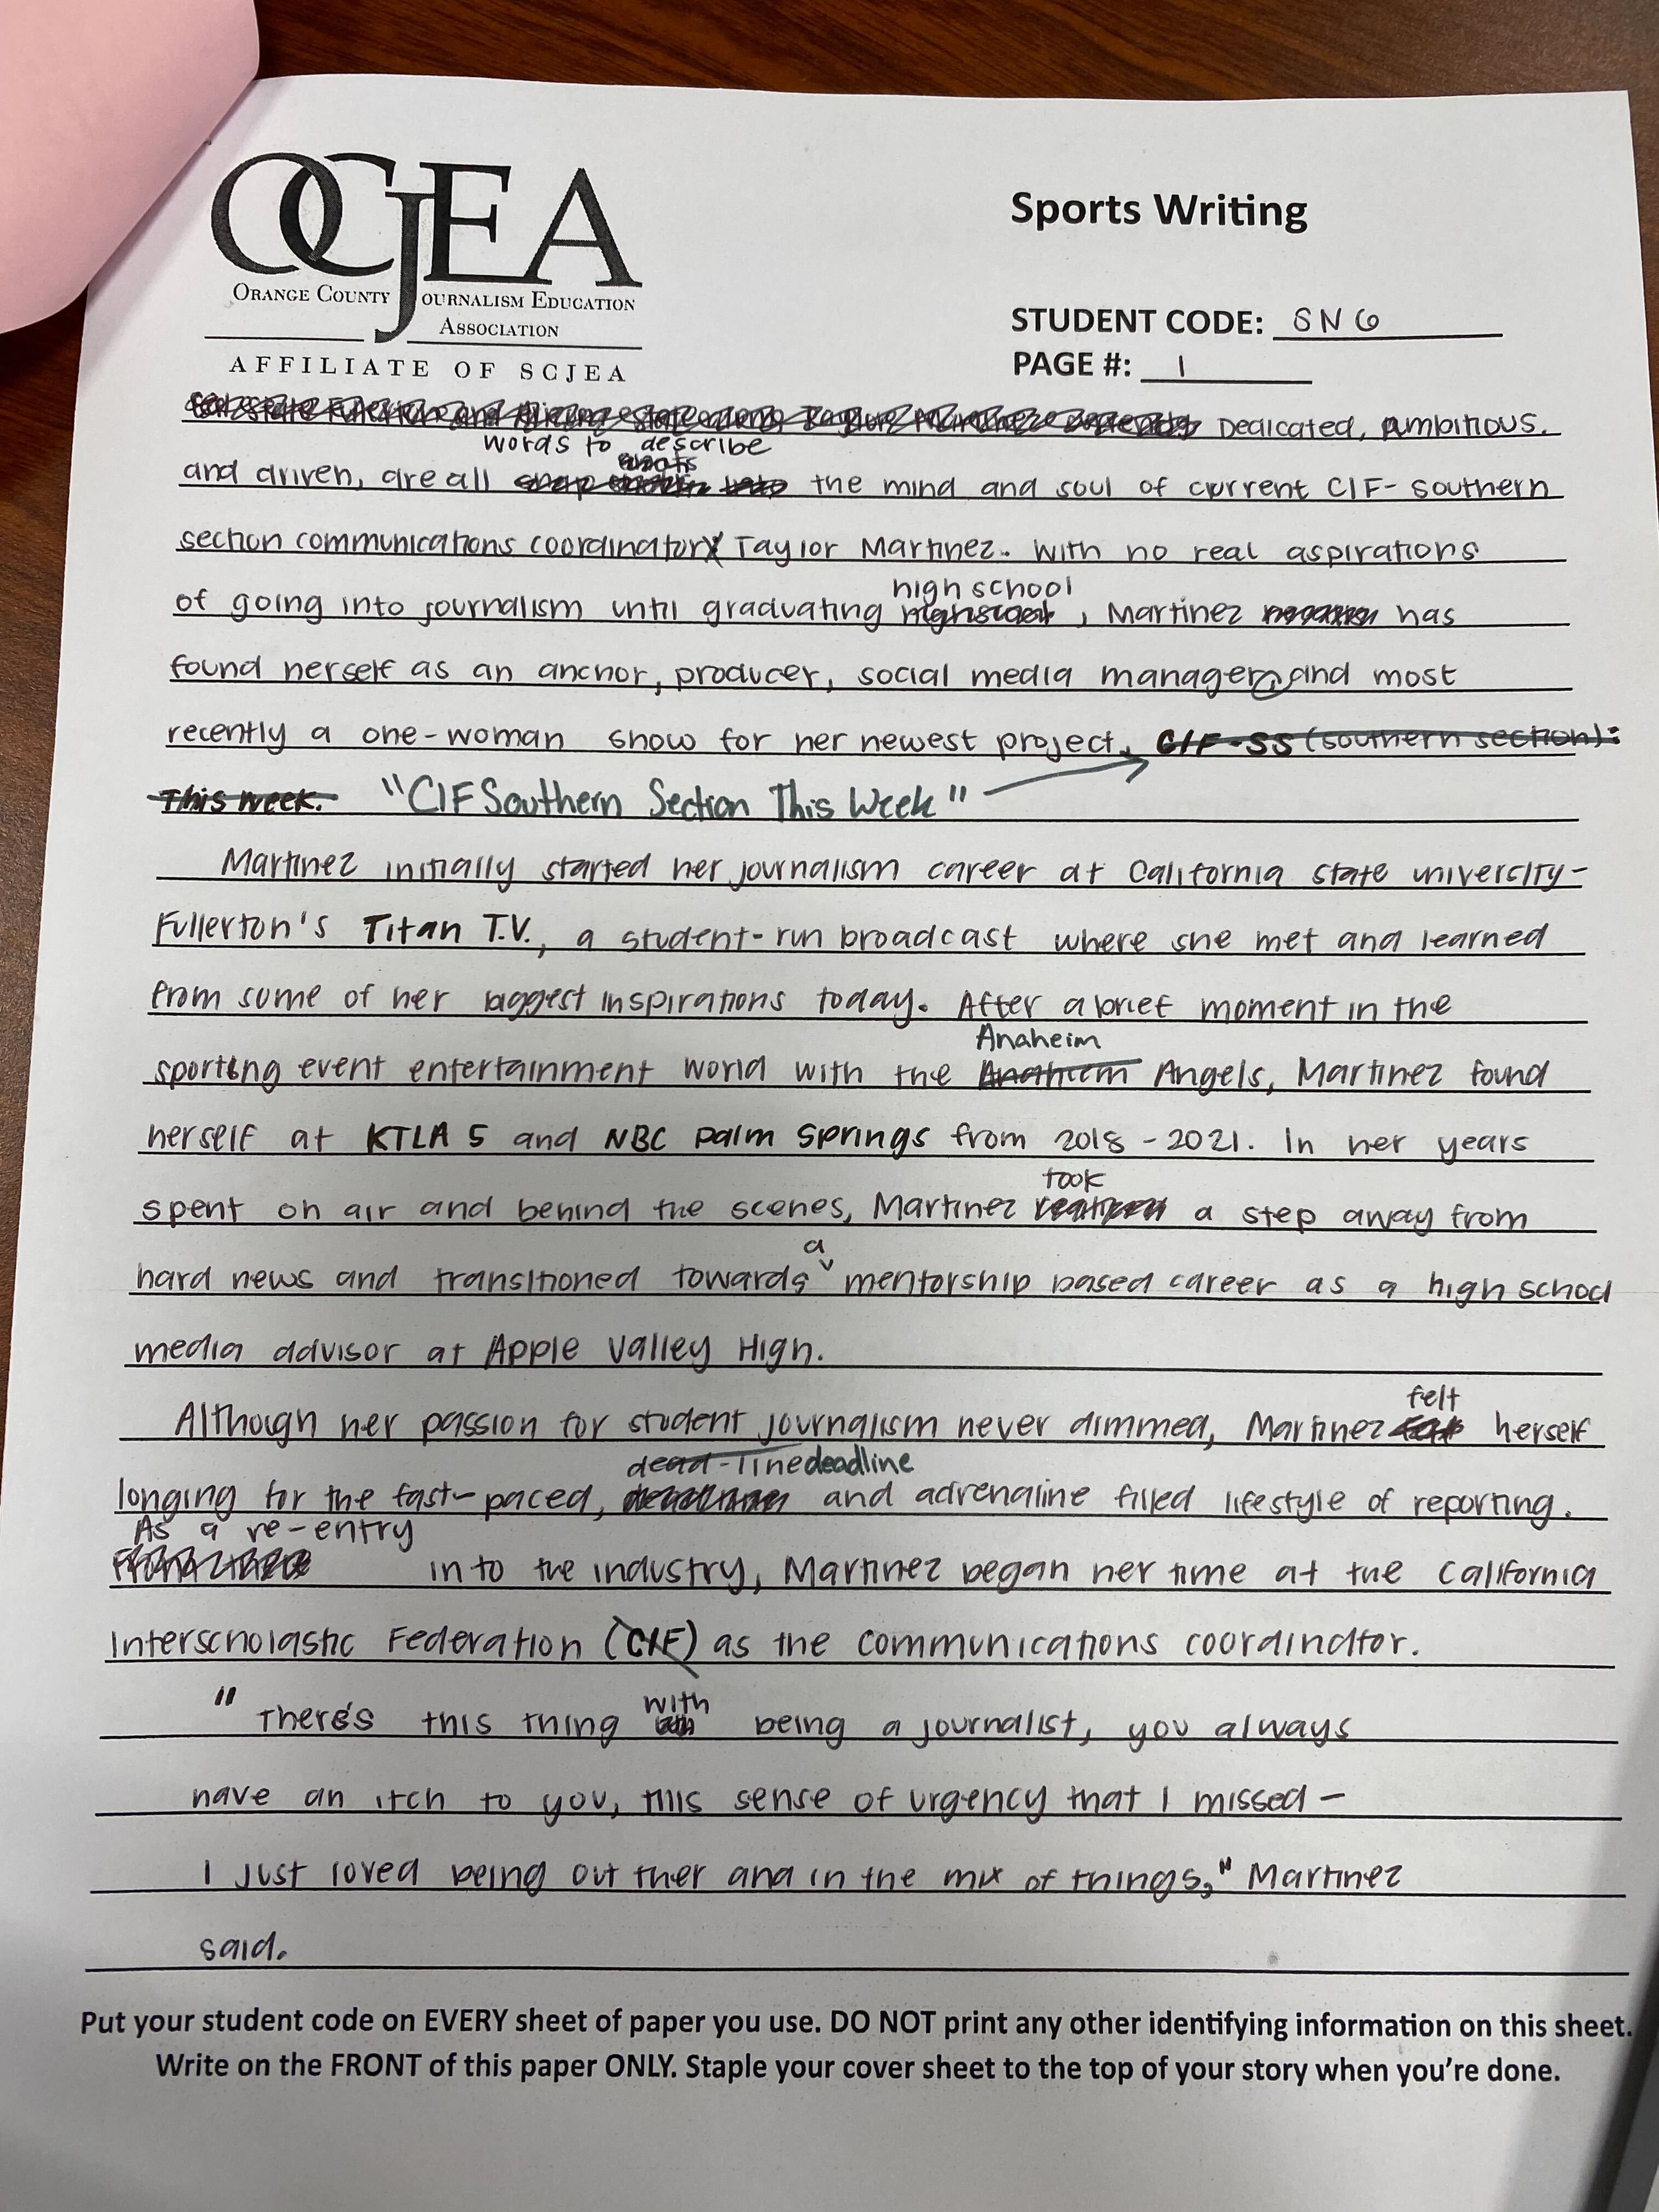 OCJEA
ORANGE COUNTY JOURNALISM EDUCATION
ASSOCIATION
AFFILIATE OF SCJEA
Sports Writing
STUDENT CODE: SNG
PAGE #: 1
Dedicated, Ambitious,
words to describe
and driven, are all the mind and soul of current CIF- southern
section communications coordinator Taylor Martinez. With no real aspirations
high school
of going into journalism until graduating highschool, Martinez has
found herself as an anchor, producer, social media manager, and most
recently a one-woman show for her newest project, CIF-SS (southern section):
This week. "CIF Southern Section This Week"
Martinez initially started her journalism career at California state university-
Fullerton's Titan T.V., a student-run broadcast where she met and learned
from some of her biggest inspirations today. After a brief moment in the
Anaheim
sporting event entertainment world with the Anahiem Angels, Martinez found
herself at KTLA 5 and NBC palm springs from 2018-2021. In her years
took
spent on air and behind the scenes, Martinez a step away from
a
hard news and transitioned towards mentorship based career as a high school
media advisor at Apple Valley High.
felt
Although her passion for student journalism never dimmed, Martinez herself
dead-line deadline
longing for the fast-paced, and adrenaline filled lifestyle of reporting.
As a re-entry
into the industry, Martinez began her time at the California
Interscholastic Federation (CIF) as the communications coordinator.
with
"There's this thing being a journalist, you always
have an itch to you, this sense of urgency that I missed-
I just loved being out ther and in the mix of things," Martinez
said.
Put your student code on EVERY sheet of paper you use. DO NOT print any other identifying information on this sheet.
Write on the FRONT of this paper ONLY. Staple your cover sheet to the top of your story when you're done.